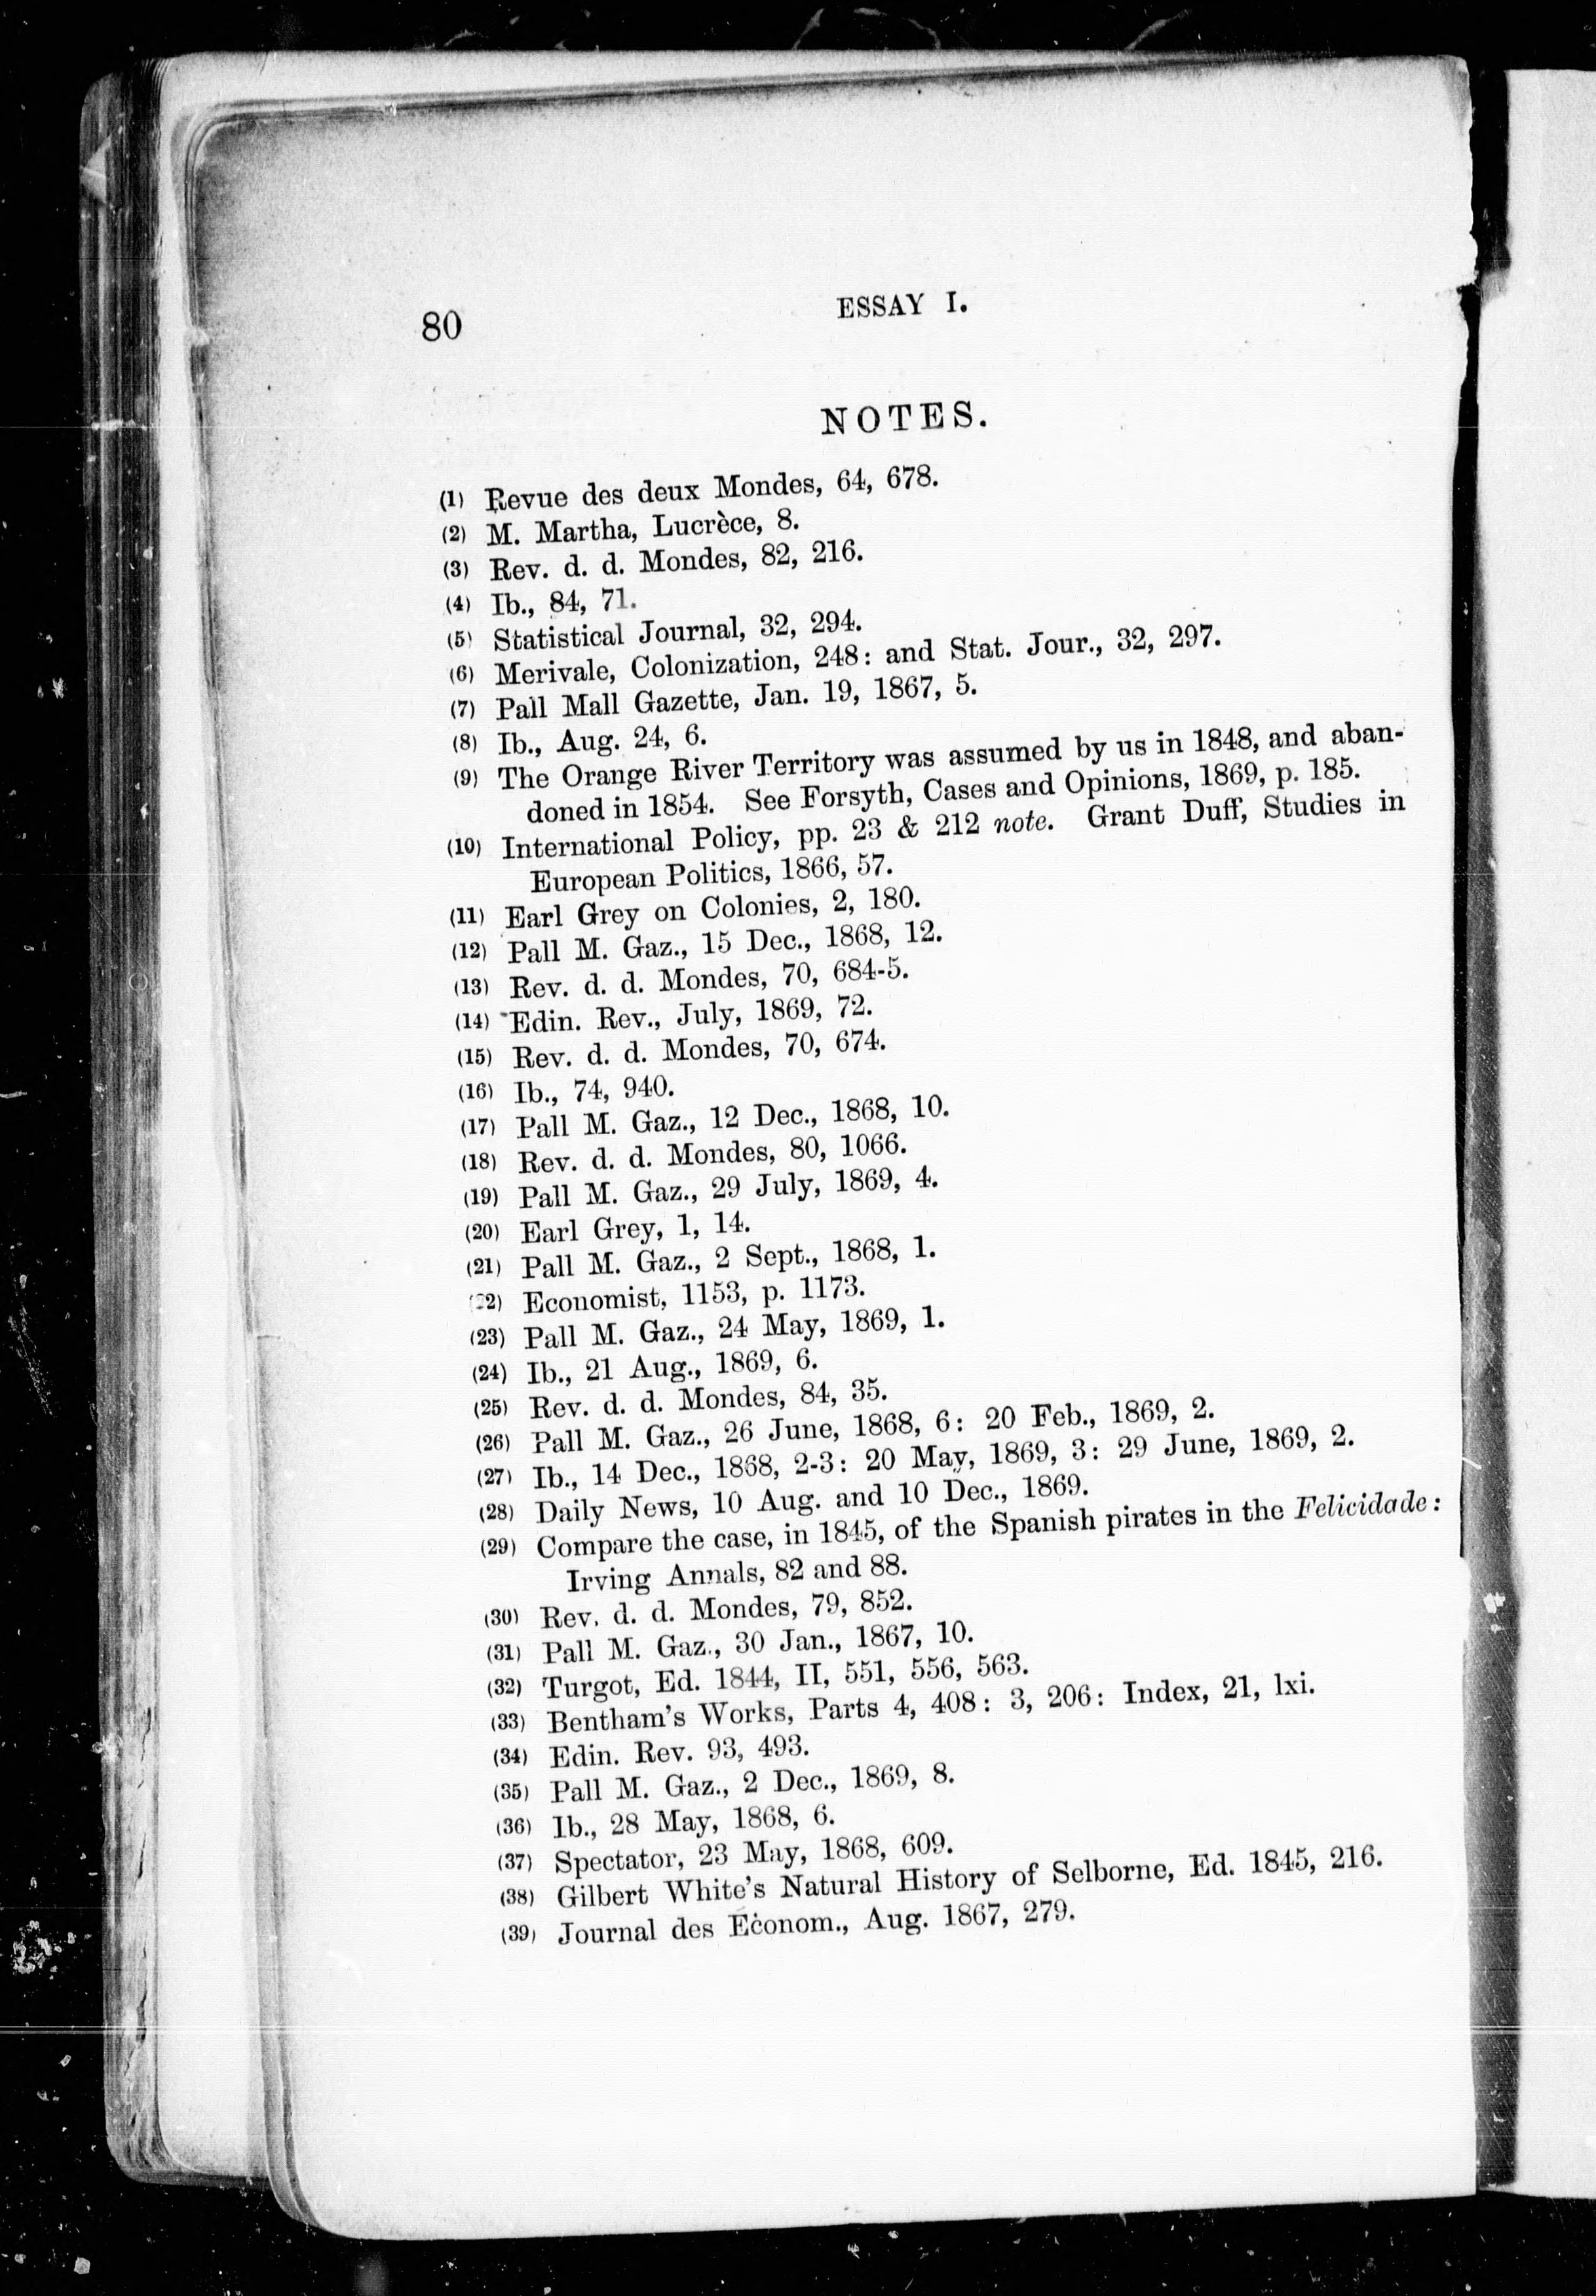 80
ESSAY I.
NOTES.
(1) Revue des deux Mondes, 64, 678.
(2) M. Martha, Lucrèce, 8.
(3) Rev. d. d. Mondes, 82, 216.
(4) Ib., 84, 71.
(5) Statistical Journal, 32, 294.
(6) Merivale, Colonization, 248: and Stat. Jour., 32, 297.
(7) Pall Mall Gazette, Jan. 19, 1867, 5.
(8) Ib., Aug. 24, 6.
(9) The Orange River Territory was assumed by us in 1848, and aban-
doned in 1854. See Forsyth, Cases and Opinions, 1869, p. 185.
(10) International Policy, pp. 23 & 212 note. Grant Duff, Studies in
European Politics, 1866, 57.
(11) Earl Grey on Colonies, 2, 180.
(12) Pall M. Gaz., 15 Dec., 1868, 12.
(13) Rev. d. d. Mondes, 70, 684-5.
(14) Edin. Rev., July, 1869, 72.
(15) Rev. d. d. Mondes, 70, 674.
(16) Ib., 74, 940.
(17) Pall M. Gaz., 12 Dec., 1868, 10.
(18) Rev. d. d. Mondes, 80, 1066.
(19) Pall M. Gaz., 29 July, 1869, 4.
(20) Earl Grey, 1, 14.
(21) Pall M. Gaz., 2 Sept., 1868, 1.
(22) Economist, 1153, p. 1173.
(23) Pall M. Gaz., 24 May, 1869, 1.
(24) Ib., 21 Aug., 1869, 6.
(25) Rev. d. d. Mondes, 84, 35.
(26) Pall M. Gaz., 26 June, 1868, 6: 20 Feb., 1869, 2.
(27) Ib., 14 Dec., 1868, 2-3: 20 May, 1869, 3: 29 June, 1869, 2.
(28) Daily News, 10 Aug. and 10 Dec., 1869.
(29) Compare the case, in 1845, of the Spanish pirates in the Felicidade:
Irving Annals, 82 and 88.
(30) Rev. d. d. Mondes, 79, 852.
(31) Pall M. Gaz., 30 Jan., 1867, 10.
(32) Turgot, Ed. 1844, II, 551, 556, 563.
(33) Bentham's Works, Parts 4, 408: 3, 206: Index, 21, lxi.
(34) Edin. Rev. 93, 493.
(35) Pall M. Gaz., 2 Dec., 1869, 8.
(36) Ib., 28 May, 1868, 6.
(37) Spectator, 23 May, 1868, 609.
(38) Gilbert White's Natural History of Selborne, Ed. 1845, 216.
(39) Journal des Econom., Aug. 1867, 279.